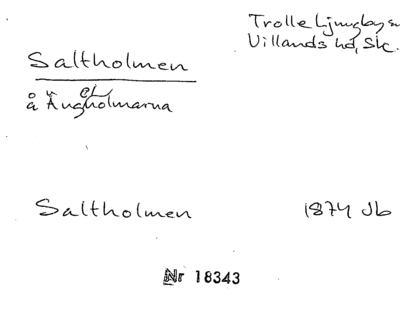 Trolle Ljungby sn
Villands hd, Sk.
Saltholmen
å Ängholmarna
el
Saltholmen 1874 Jb
Nr 18343